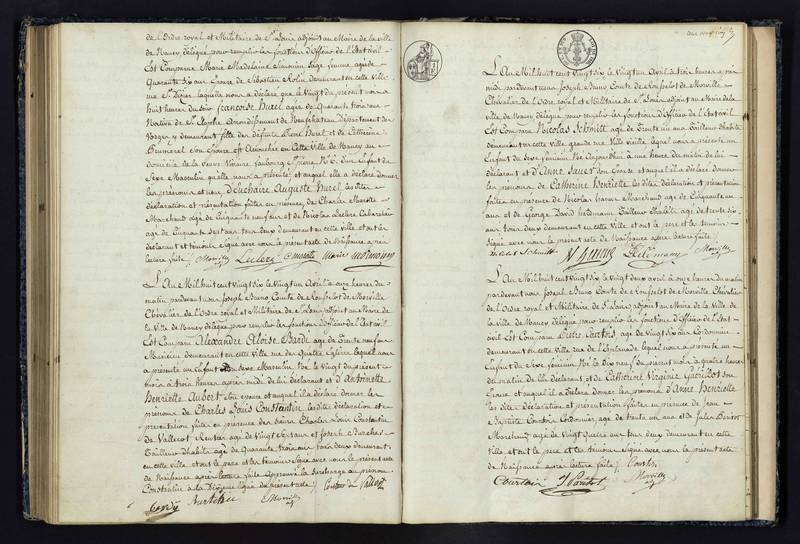 de l'Ordre royal et Militaire de St Louis adjoint au Maire de la ville
de Nancy, délégué pour remplir les fonctions d'Officier de l'Etat civil
Est Comparue Marie Madelaine Simonin Sage femme agée de
Quarante six ans Epouse de Sébastien demeurant en cette Ville
rue St Dizier laquelle nous a déclaré que le Vingt du présent mois a
huit heures du soir françoise Hurel agée de Quarante trois ans
Native de Arrondissement de Neufchateau Département des
Vosges y demeurant fille des défunts Hurel et de Catherine
son Epouse est Accouchée en Cette Ville de Nancy au
domicile de la Veuve faubourg St pierre No 6 d'un Enfant du
Sexe Masculin qu'elle nous a présenté et auquel elle a déclaré donner
les prénoms et nom d'Euchaire Auguste Hurel les dites
déclaration et présentation faites en présence de Charles Marotte
Marchand agé de Cinquante neuf ans et de Nicolas Leclerc Cabaretier
agé de Cinquante sept ans tous deux demeurant en cette ville et ont les
déclarant et témoins Signé avec nous le présent acte de Naissance après
lecture faite Leclerc C marotte Marie simonin
L'An Mil huit cent Vingt six le Vingt un Avril a onze heures du
matin pardevant nous Joseph Bruno Comte de Rousselot de Morville
Chevalier de l'Ordre royal et Militaire de St Louis adjoint au Maire de
la Ville de Nancy délégué pour remplir les fonctions d'Officier de l'Etat civil
Est Comparu Alexandre Eloise Bardi agé de Trente neuf ans
demeurant en cette Ville rue des Quatre Eglises lequel nous
a présenté un Enfant du Sexe Masculin Né le Vingt du présent
mois a trois heures après midi de lui déclarant et d'Antoinette
Henriette Aubert son Epouse et auquel il a déclaré donner les
prénoms de Charles Louis Constantin les dites déclaration et
présentation faites en présence des Sieurs Charles Louis Constantin
de Vallerot Rentier agé de Vingt Sept ans et Joseph
Tailleur d'habits agé de Quarante trois ans tous deux demeurant
en cette Ville et ont le père et les témoins Signé avec nous le présent acte
de Naissance après lecture faite Approuvé la Surcharge au prénom
Constantin a la ligne du présent acte de Vallerot
Morville
L'An Mil huit cent Vingt six le Vingt un Avril a trois heures après
midi pardevant nous Joseph Bruno Comte de Rousselot de Morville
Chevalier de l'Ordre royal et Militaire de St Louis adjoint au Maire de la
ville de Nancy délégué pour remplir les fonctions d'Officier de l'Etat civil
Est Comparu Nicolas Schmitt agé de Trente un ans d'habits
demeurant en cette Ville grande rue Ville vieille lequel nous a présenté un
Enfant du Sexe féminin Né aujourd'hui a une heure du matin de lui
déclarant et d'Anne son Epouse et auquel il a déclaré donner
les prénoms de Catherine Henriette les dites déclaration et présentation
faites en présence de Nicolas Marchand agé de Cinquante un
ans et de George David Tailleur d'habits agé de trente six
ans tous deux demeurant en cette Ville et ont le père et les témoins
Signé avec nous le présent acte de Naissance après lecture faite
Schmitt Morville
L'An Mil huit cent Vingt six le Vingt deux avril a onze heures du matin
pardevant nous Joseph Bruno Comte de Rousselot de Morville Chevalier
de l'Ordre royal et Militaire de St Louis adjoint au Maire de la Ville de
la Ville de Nancy délégué pour remplir les fonctions d'Officier de l'Etat
civil Est Comparu Pierre Courtois agé de Vingt six ans Cordonnier
demeurant en cette Ville rue de l'Esplanade lequel nous a présenté un
Enfant du Sexe féminin Né le dix neuf du présent mois a quatre heures
du matin de lui déclarant et de Catherine Virginie son
Epouse et auquel il a déclaré donner les prénoms d'Anne Henriette
les dites déclaration et présentation faites en présence de Jean
Baptiste Cordonnier agé de trente un ans et de Jules
Marchand agé de Vingt Quatre ans tous deux demeurant en cette
Ville et ont le père et les témoins Signé avec nous le présent acte
de Naissance après lecture faite
Courtois Morville